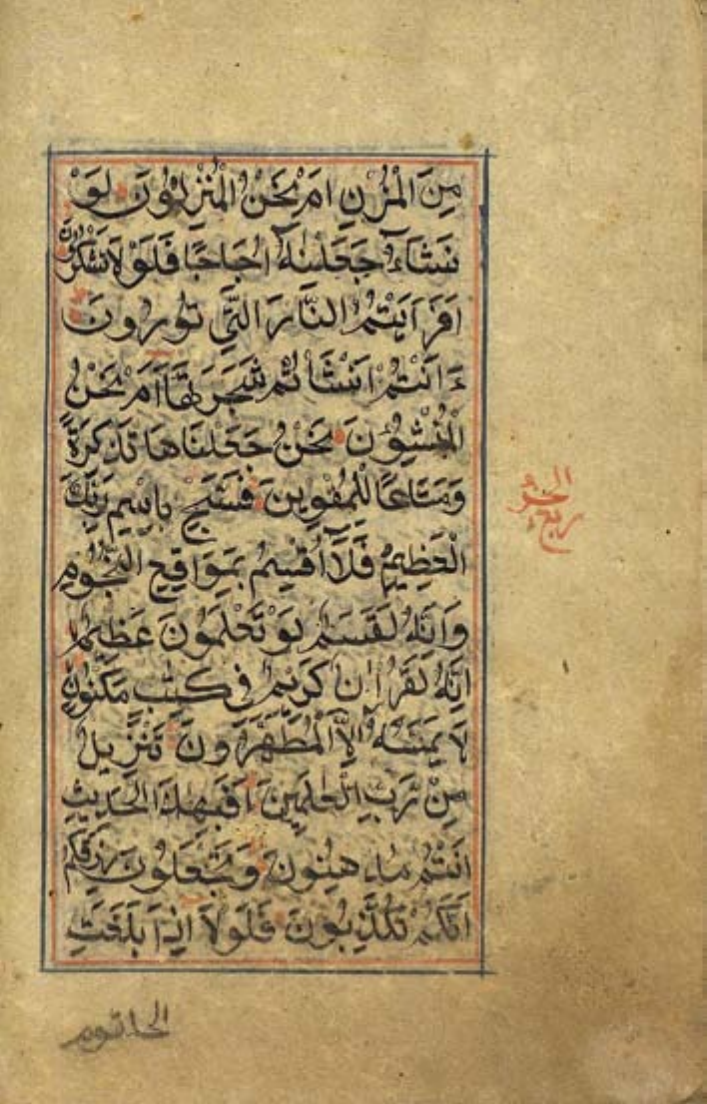 مِنَ الْمُزْنِ اَمْ نَحْنُ الْمُنْزِلُونَ لَوْ
نَشَاءُ جَعَلْنٰهُ اُجَاجًا فَلَوْلَا تَشْكُرُونَ
اَفَرَاَيْتُمُ النَّارَ الَّتِي تُورُونَ
ءَاَنْتُمْ اَنْشَاْتُمْ شَجَرَتَهَا اَمْ نَحْنُ
الْمُنْشِؤُنَ نَحْنُ جَعَلْنَاهَا تَذْكِرَةً
وَمَتَاعًا لِلْمُقْوِينَ فَسَبِّحْ بِاسْمِ رَبِّكَ
الْعَظِيمِ فَلَا اُقْسِمُ بِمَوَاقِعِ النُّجُومِ
وَاِنَّهُ لَقَسَمٌ لَوْ تَعْلَمُونَ عَظِيمٌ
اِنَّهُ لَقُرْاٰنٌ كَرِيمٌ فِي كِتٰبٍ مَكْنُونٍ
لَا يَمَسُّهُ اِلَّا الْمُطَهَّرُونَ تَنْزِيلٌ
مِنْ رَبِّ الْعٰلَمِينَ اَفَبِهٰذَا الْحَدِيثِ
اَنْتُمْ مُدْهِنُونَ وَتَجْعَلُونَ رِزْقَكُمْ
اَنَّكُمْ تُكَذِّبُونَ فَلَوْلَا اِذَا بَلَغَتِ
ربع
الحلقوم